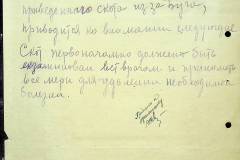 приведенного скота из за Буга,
приводится ко вниманию следующее
Скот первоначально должен быть
вет врачом и принимать
все меры для удаления необходимо
болезни.